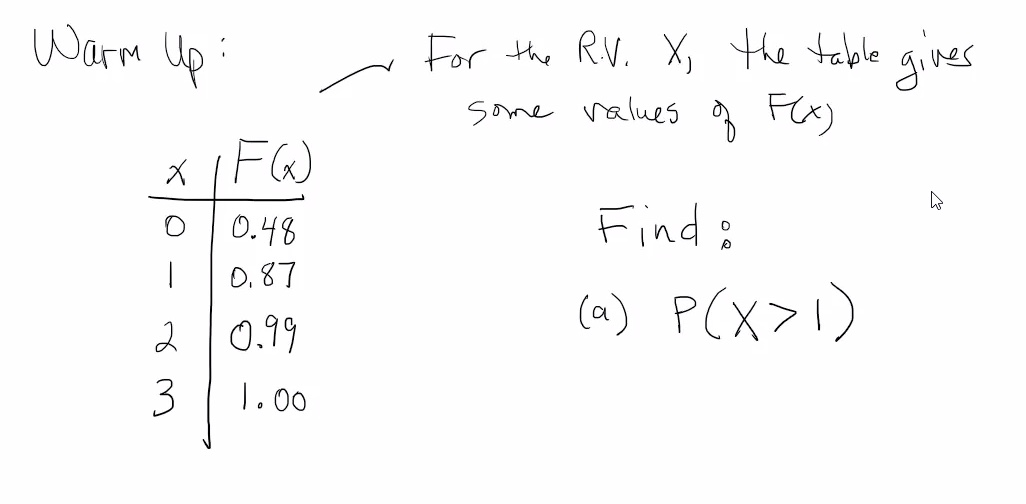 Warm Up:
For the R.V. X, the table gives
some values of F(x)
x F(x)
0 0.48
1 0.87
2 0.99
3 1.00
Find:
(a) P(X>1)